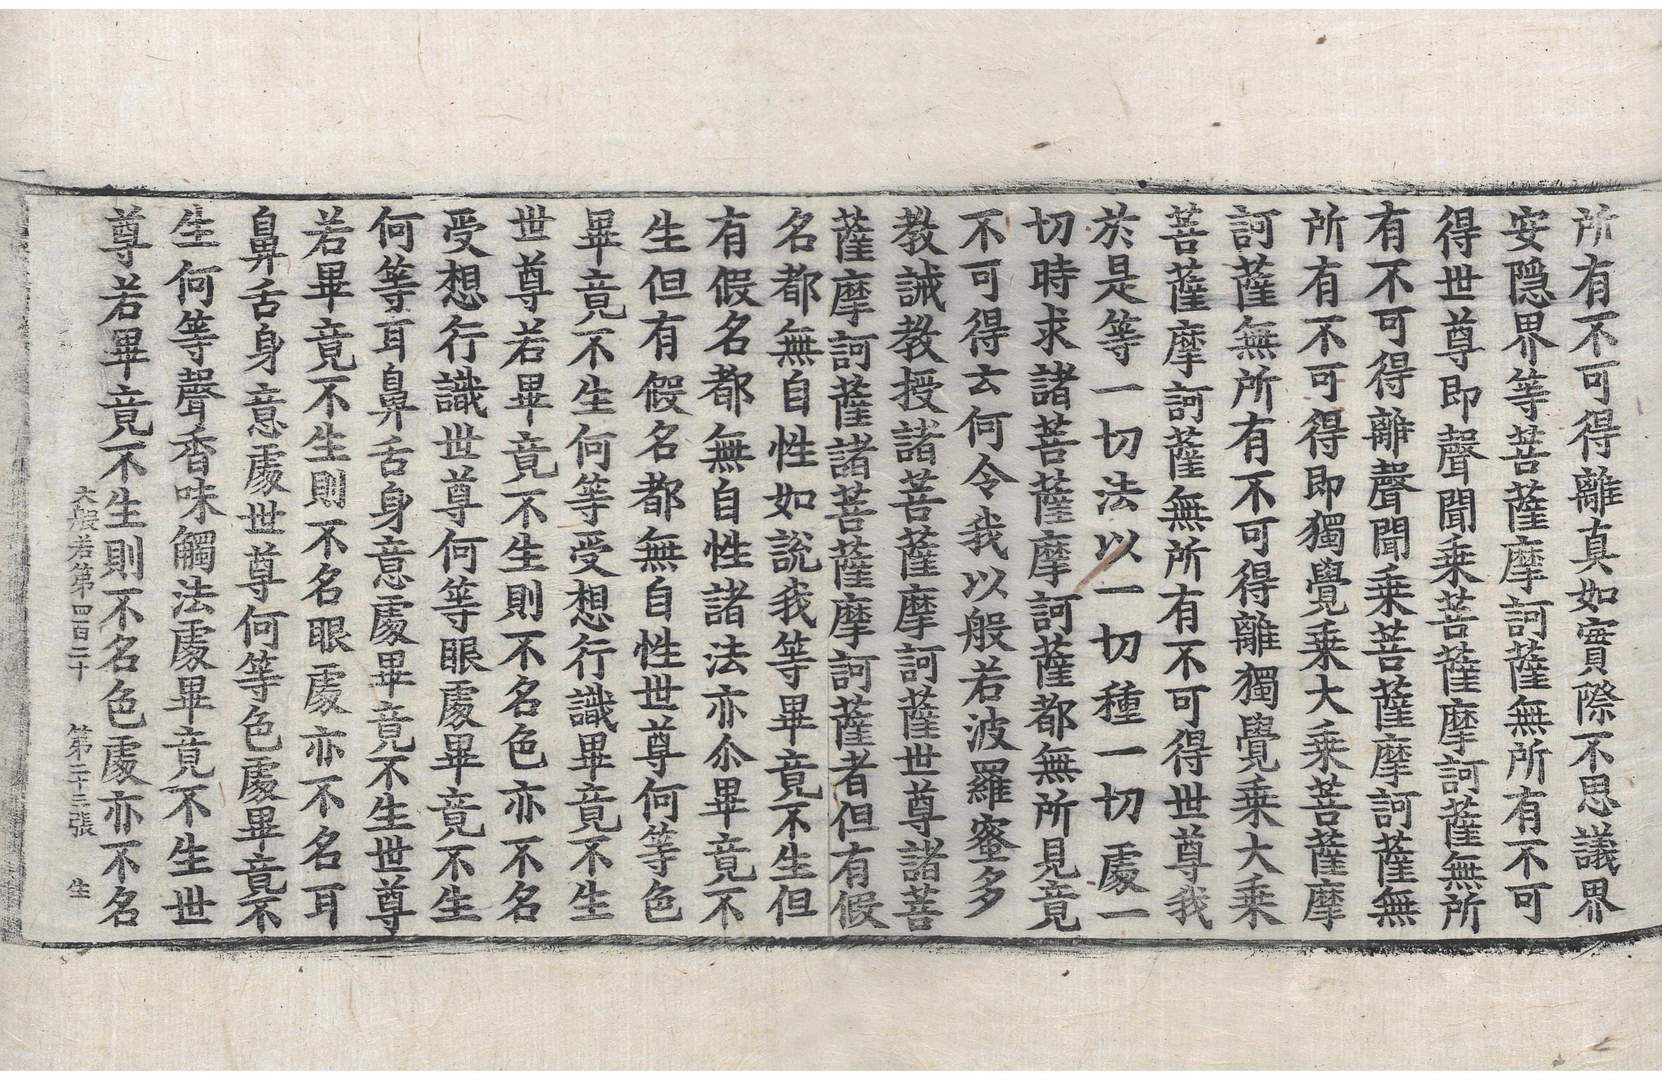 所有不可得離真如實際不思議界
安隱界等菩薩摩訶薩無所有不可
得世尊即聲聞乘菩薩摩訶薩無所
有不可得離聲聞乘菩薩摩訶薩無
所有不可得即獨覺乘大乘菩薩摩
訶薩無所有不可得離獨覺乘大乘
菩薩摩訶薩無所有不可得世尊我
於是等一切法以一切種一切處一
切時求諸菩薩摩訶薩都無所見竟
不可得云何令我以般若波羅蜜多
教誡教授諸菩薩摩訶薩世尊諸菩
薩摩訶薩諸菩薩摩訶薩者但有假
名都無自性如說我等畢竟不生但
有假名都無自性諸法亦尒畢竟不
生但有假名都無自性世尊何等色
畢竟不生何等受想行識畢竟不生
世尊若畢竟不生則不名色亦不名
受想行識世尊何等眼處畢竟不生
何等耳鼻舌身意處畢竟不生世尊
若畢竟不生則不名眼處亦不名耳
鼻舌身意處世尊何等色處畢竟不
生何等聲香味觸法處畢竟不生世
尊若畢竟不生則不名色處亦不名
大般若第四百二十 第二十三張 生